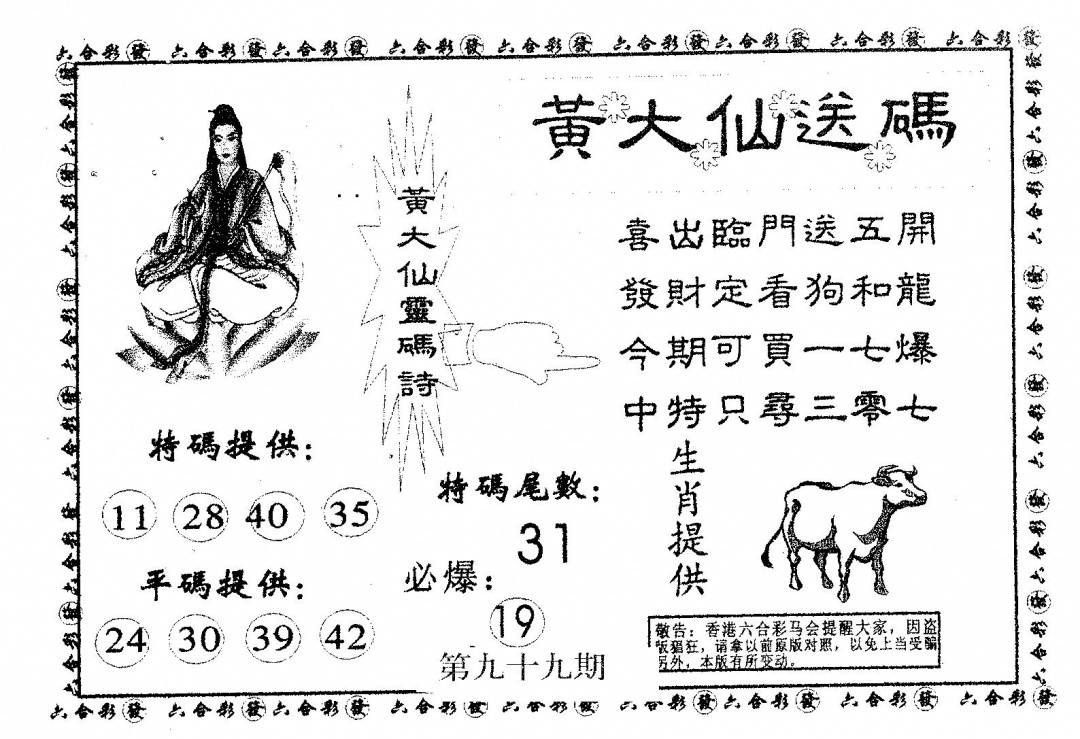 六合彩發 六合彩發六合彩發 六合彩發六合彩發 六合彩發六合彩發 六合彩發 六合彩發
黃大仙送碼
黃大仙靈碼詩
喜出臨門送五開
發財定看狗和龍
今期可買一七爆
中特只尋三零七
特碼提供：
11 28 40 35
平碼提供：
24 30 39 42
特碼尾數：
31
必爆：
19
第九十九期
生肖提供
敬告：香港六合彩马会提醒大家，因盗
版猖狂，请拿以前原版对照，以免上当受骗
另外，本版有所变动。
六合彩發 六合彩發六合彩發 六合彩發 六合彩發 六合彩發六合彩發 六合彩發 六合彩發